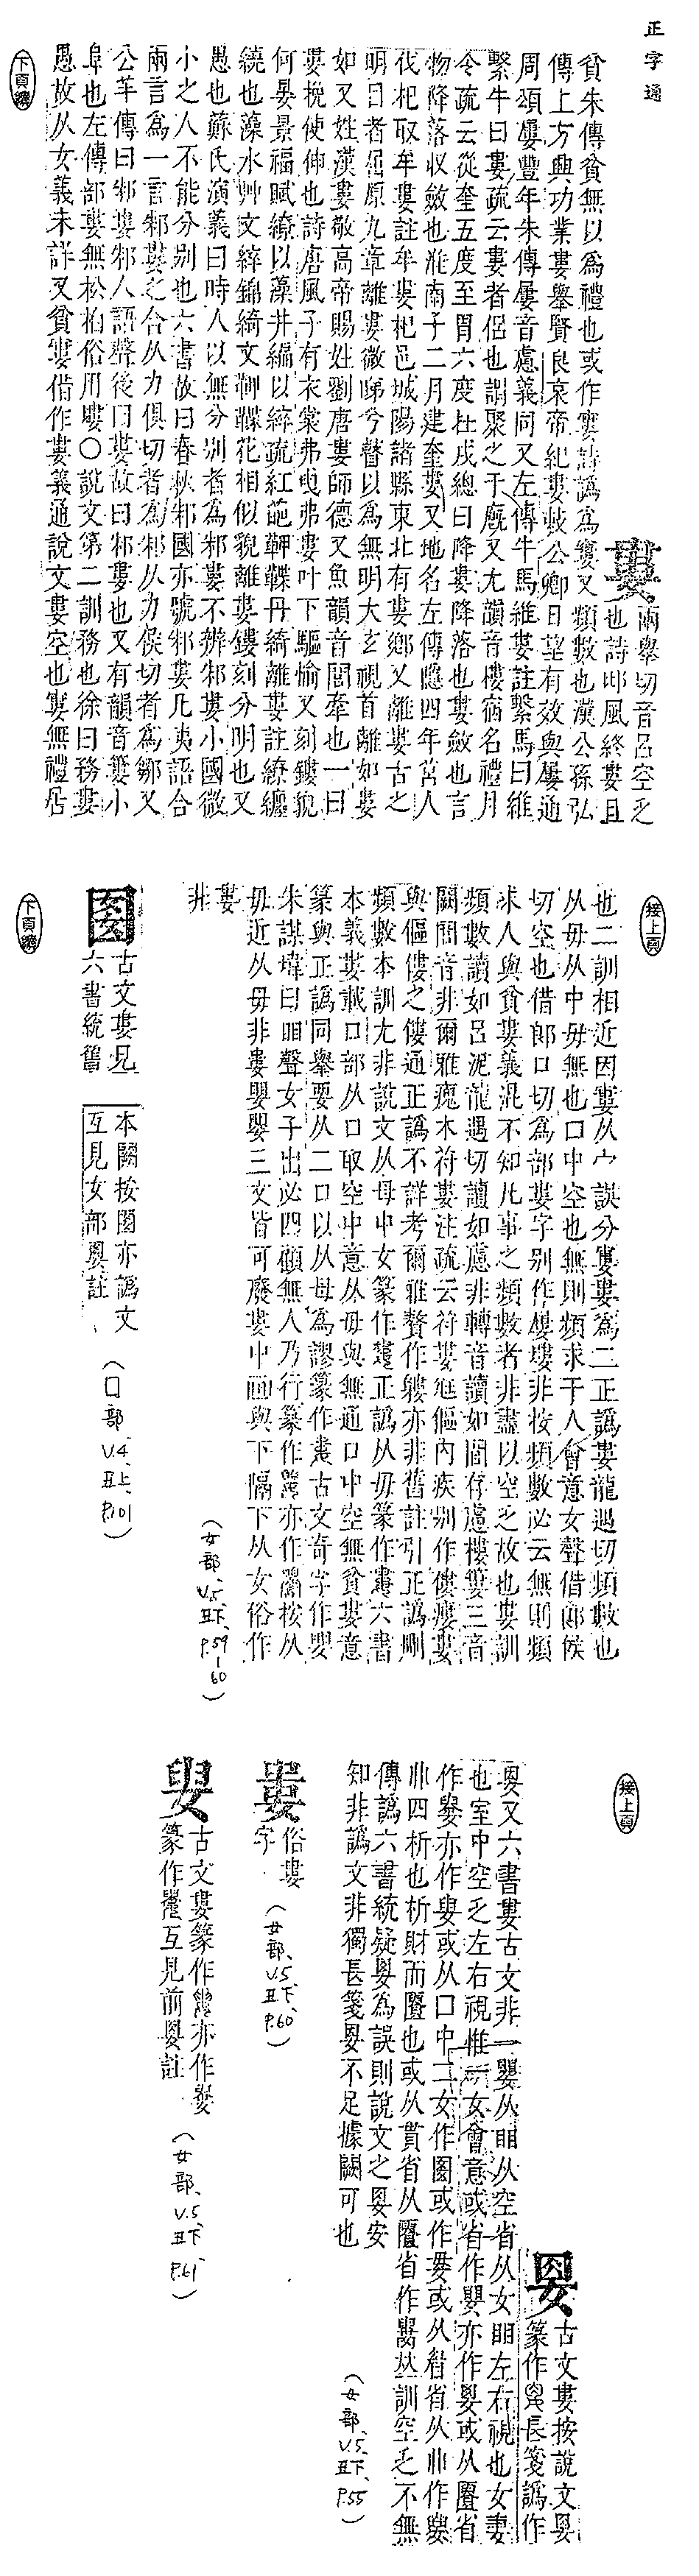 正字通
婁
兩舉切音呂空乏
也詩邶風終婁且
貧朱傳貧無以為禮也或作窶詩譌為寠又頻數也漢公孫弘
傳上方興功業婁舉賢良哀帝紀婁敕公卿日望有效與屢通
周頌屢豐年朱傳屢音慮義同又左傳牛馬維婁註繫馬曰維
繫牛曰婁疏云婁者侶也謂聚之于廄又尤韻音樓宿名禮月
令疏云從奎五度至胃六度在戌總曰降婁降落也婁斂也言
物降落收斂也淮南子二月建奎婁又地名左傳隱四年莒人
伐杞取牟婁註牟婁杞邑城陽諸縣東北有婁鄉又離婁古之
明目者屈原九章離婁微睇兮瞽以為無明大玄視首離如婁
如又姓漢婁敬高帝賜姓劉唐婁師德又魚韻音閭牽也一曰
婁挽使伸也詩唐風子有衣裳弗曳弗婁叶下驅愉又刻鏤貌
何晏景福賦繚以藻井編以綷疏紅葩䩞鞢丹綺離婁註繚纏
繞也藻水艸文綷錦綺文䩞鞢花相似貌離婁鏤刻分明也又
愚也蘇氏演義曰時人以無分別者為邾婁不辨邾婁小國微
小之人不能分別也六書故曰春秋邾國亦號邾婁凡夷語合
兩言為一言邾婁之合从力俱切者為邾从力侯切者為鄒又
公羊傳曰邾婁邾人語聲後曰婁故曰邾婁也又有韻音簍小
阜也左傳部婁無松柏俗用塿〇說文第二訓務也徐曰務婁
愚故从女義未詳又貧窶借作婁義通說文婁空也窶無禮居
下頁續
接上頁
也二訓相近因窶从宀誤分窶婁為二正譌婁龍遇切頻數也
从毋从中毋無也口中空也無則頻求于人會意女聲借郎侯
切空也借郎口切為部婁字別作樓塿非按頻數必云無則頻
求人與貧婁義混不知凡事之頻數者非盡以空乏故也婁訓
頻數讀如呂泥龍遇切讀如慮非轉音讀如閭存慮樓簍三音
闕閭音非爾雅瘣木苻婁注疏云苻婁尪傴內疾別作僂瘻婁
與傴僂之僂通正譌不詳考爾雅贅作軁亦非舊註引正譌刪
頻數本訓尤非說文从毋中女篆作婁正譌从毋篆作婁六書
本義婁載口部从口取空中意从毋與無通口中空無貧婁意
篆與正譌同舉要从二口以从母為謬篆作婁古文奇字作䁖
朱謀㙔曰䀠聲女子出必四顧無人乃行篆作亦作按从
毋近从毋非婁三文皆可廢婁中畫與下隔下从女俗作
婁
非
(女部、V.5、丑下、P.59-60)
古文婁見
六書統舊
本闕按亦譌文
互見女部註
(口部、V.4、丑上、P.101)
下頁續
接上頁
古文婁按說文
篆作長箋譌作
又六書婁古文非一从䀠从空省从女䀠左右視也女妻
也室中空乏左右視惟一女會意或省作亦作或从匱省
作亦作或从口中二女作或作或从省从作
四析也析財而匱也或从貫省从匱省作訓空乏不無
傳譌六書統疑為誤則說文之安
知非譌文非獨長箋不足據闕可也
(女部、V.5、丑下、P.55)
俗婁
字
(女部、V.5、丑下、P.60)
古文婁篆作亦作
篆作互見前註
(女部、V.5、丑下、P.61)